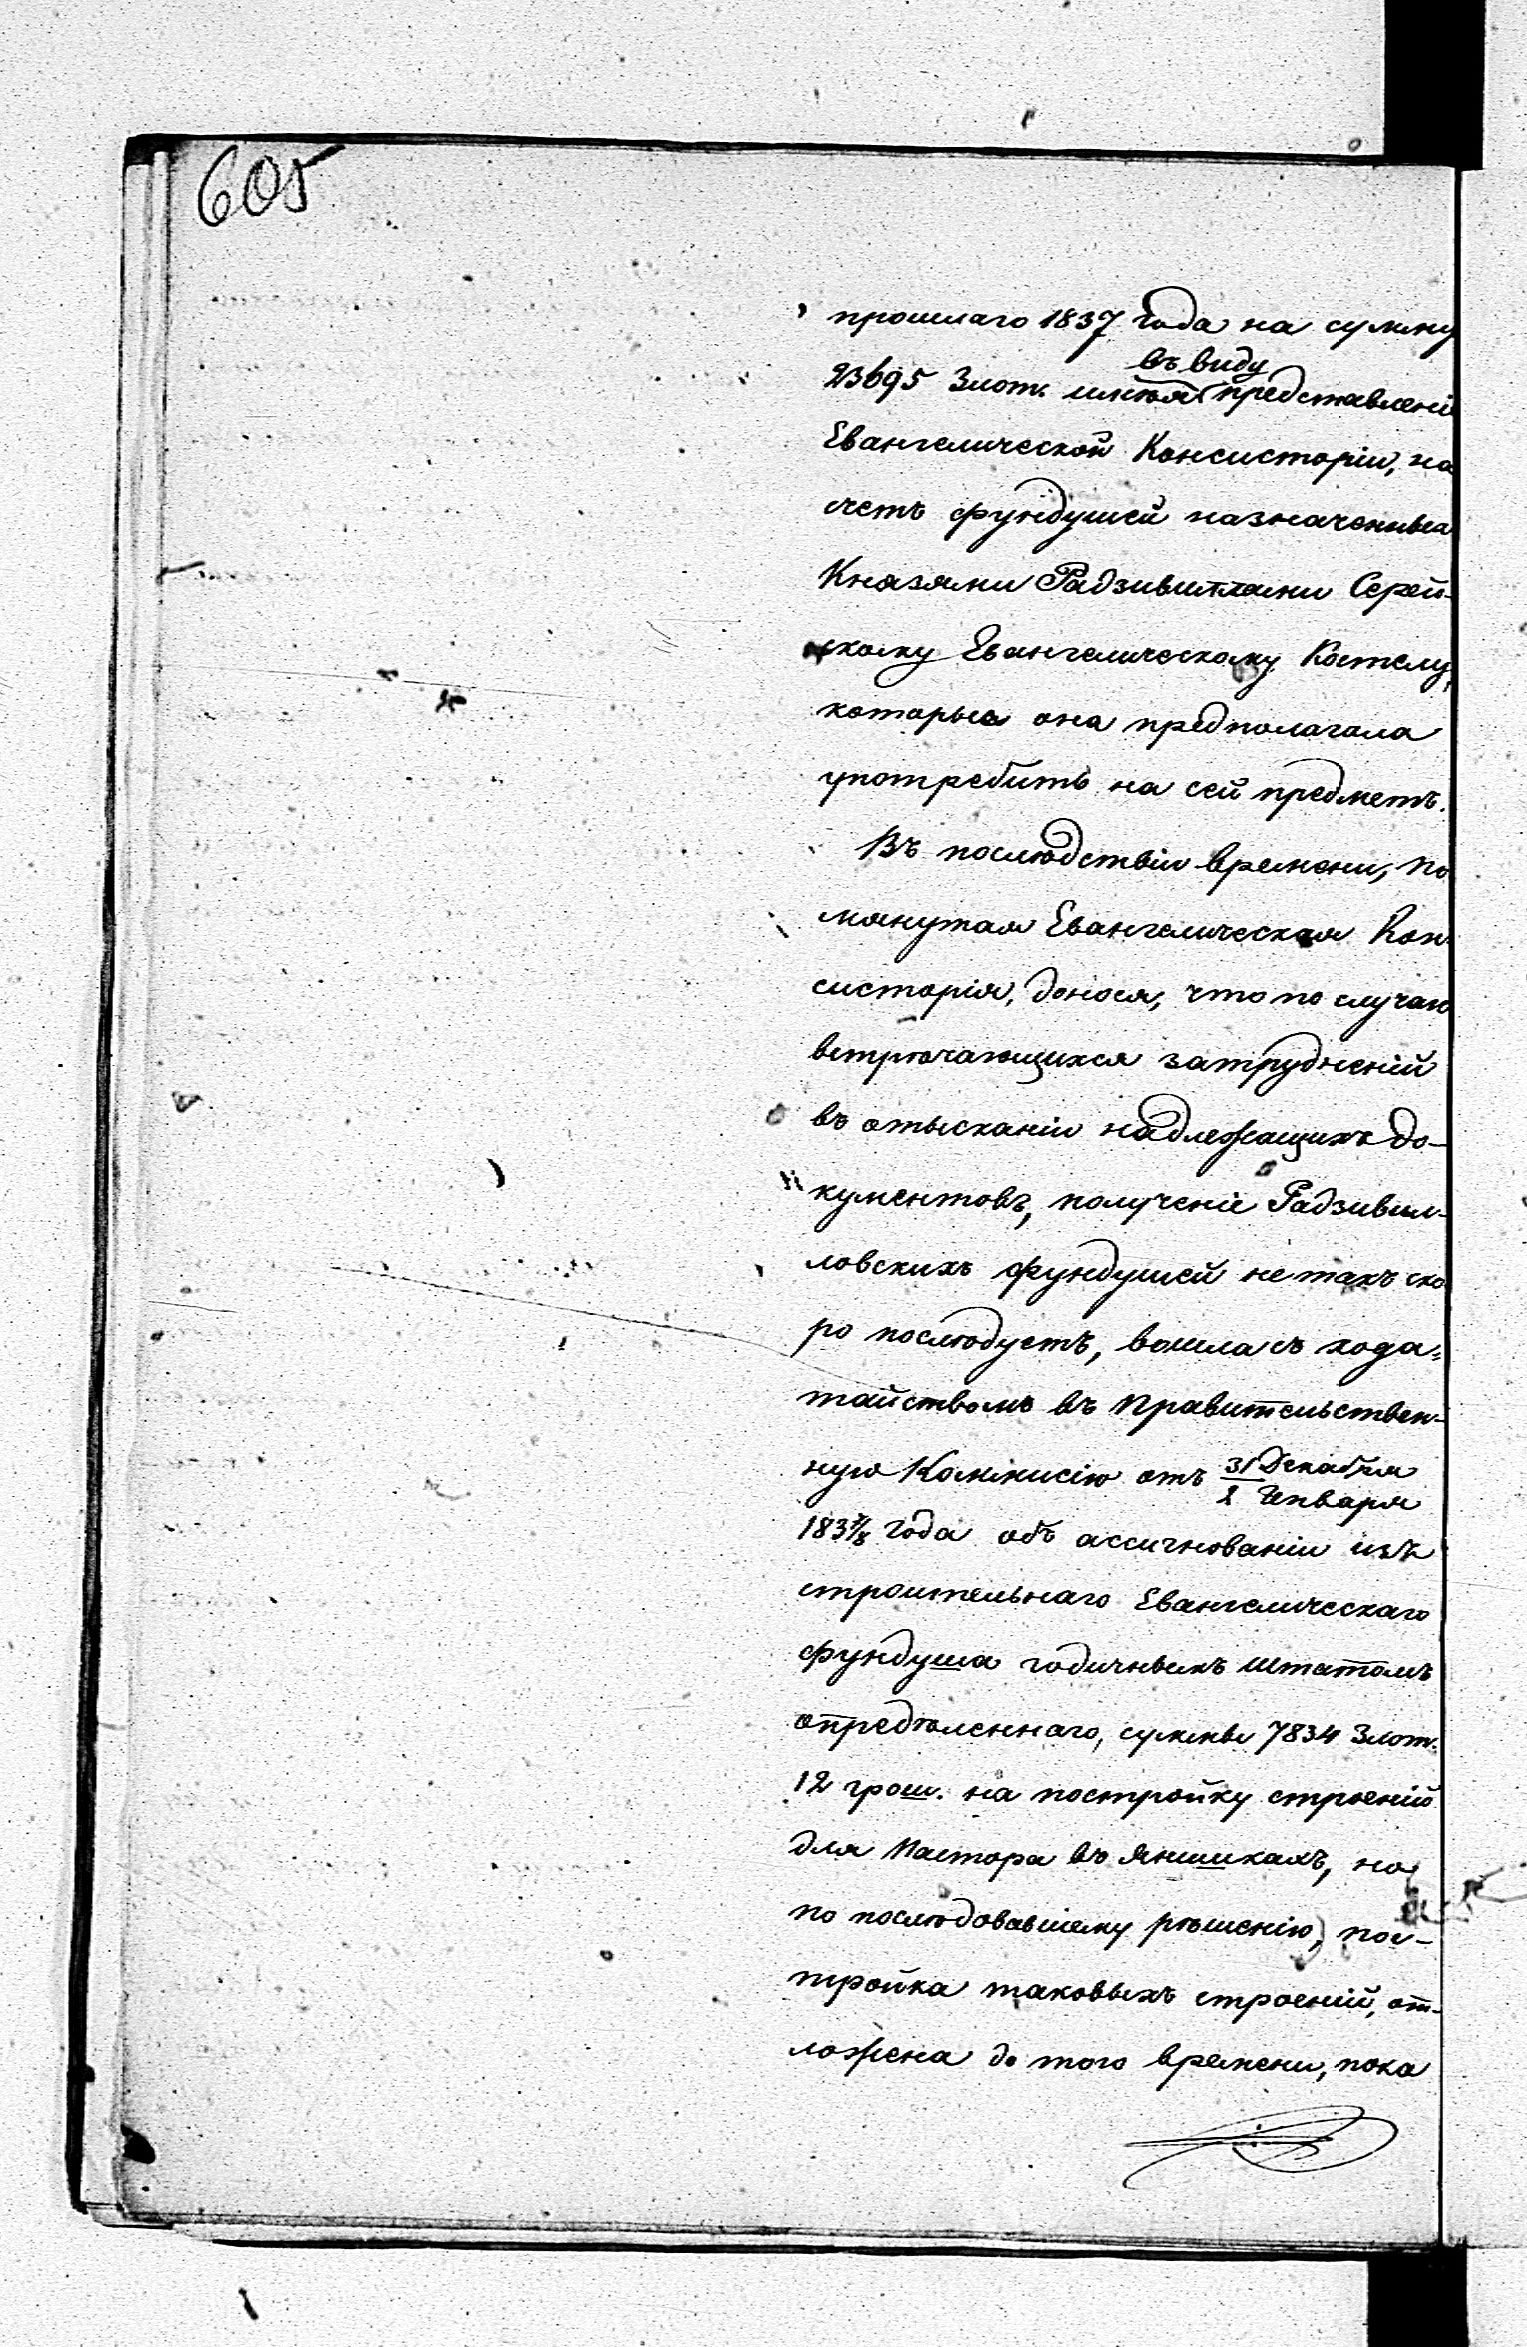 605
прошлаго 1837 года на сумму
въ виду
23695 Злот. имѣя представленіе
Евангелической Консисторіи, на
счетъ фундушей назначенныхъ
Князями Радзивиллами Серей-
скому Евангелическому Костелу,
которые она предполагала
употребить на сей предметъ.
Въ послѣдствіи времени, по
мянутая Евангелическая Кон-
систорія, донося, что по случаю
встрѣчающихся затрудненій
въ отысканіи надлежащихъ до-
кументовъ, полученіе Радзивил-
ловскихъ фундушей не такъ ско
ро послѣдуетъ, вошла съ хода-
тайствомъ въ Правительствен-
ную Коммисію отъ 31 Декабря
2 Января
1837/8 года объ ассигнованіи изъ
строительнаго Евангелическаго
фундуша годичныхъ Штатомъ
опредѣленнаго, суммы 7834 Злот.
12 грош. на постройку строеній
для Пастора въ Яншикахъ, но
по послѣдовавшему рѣшенію, пос-
тройка таковыхъ строеній, от-
ложена до того времени, пока